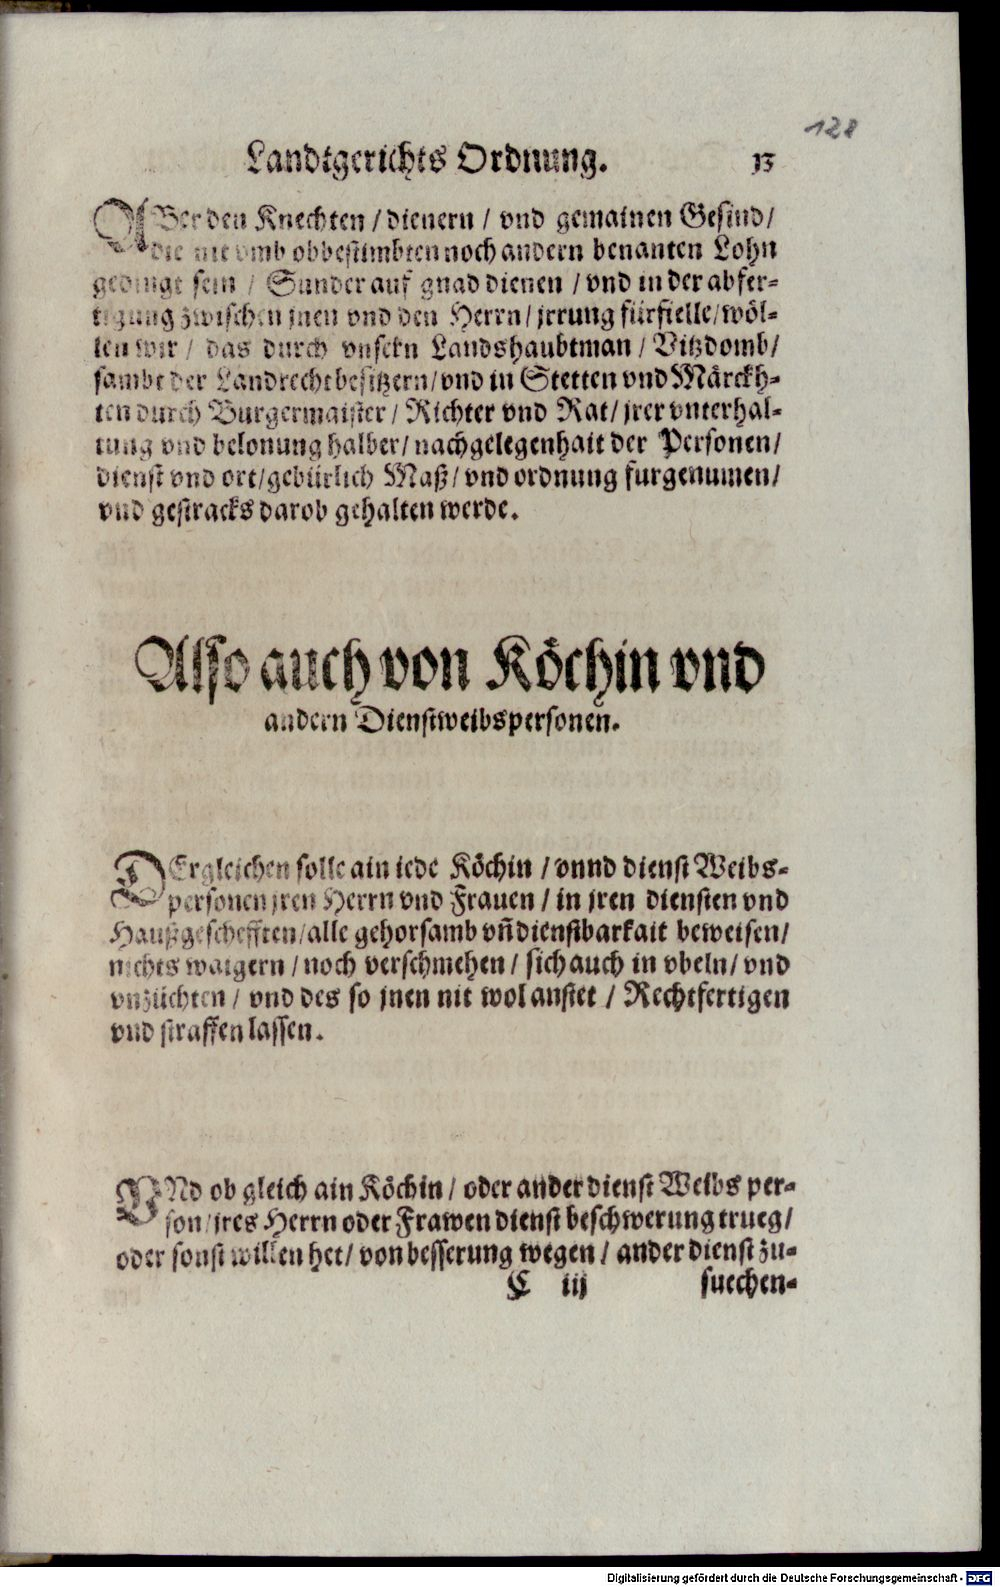 128
Landtgerichts Ordnung. 13
ABer den Knechten / dienern / vnd gemainen Gesind /
die nit vmb obbestimbten noch andern benanten Lohn
gedingt sein / Sunder auf gnad dienen / vnd in der abfer-
tigung zwischen jnen vnd den Herrn / jrrung fürfielle / wöl-
len wir / das durch vnsern Landshaubtman / Vitzdomb /
sambt der Landrechtbesitzern / vnd in Stetten vnd Märckh-
ten durch Burgermaister / Richter vnd Rat / jrer vnterhal-
tung vnd belonung halber / nach gelegenhait der Personen /
dienst vnd ort / gebürlich Maß / vnd ordnung furgenumen /
vnd gestracks darob gehalten werde.
Also auch von Köchin vnd
andern Dienstweibspersonen.
DErgleichen solle ain iede Köchin / vnnd dienst Weibs-
personen jren Herrn vnd Frauen / in jren diensten vnd
Haußgeschefften / alle gehorsamb vñ dienstbarkait beweisen /
nichts waigern / noch verschmehen / sich auch in vbeln / vnd
vnzüchten / vnd des so jnen nit wol anstet / Rechtfertigen
vnd straffen lassen.
VNd ob gleich ain Köchin / oder ander dienst Weibs per-
son / jres Herrn oder Frawen dienst beschwerung trueg /
oder sonst willen het / von besserung wegen / ander dienst zu-
C iij suechen-
Digitalisierung gefördert durch die Deutsche Forschungsgemeinschaft - DFG